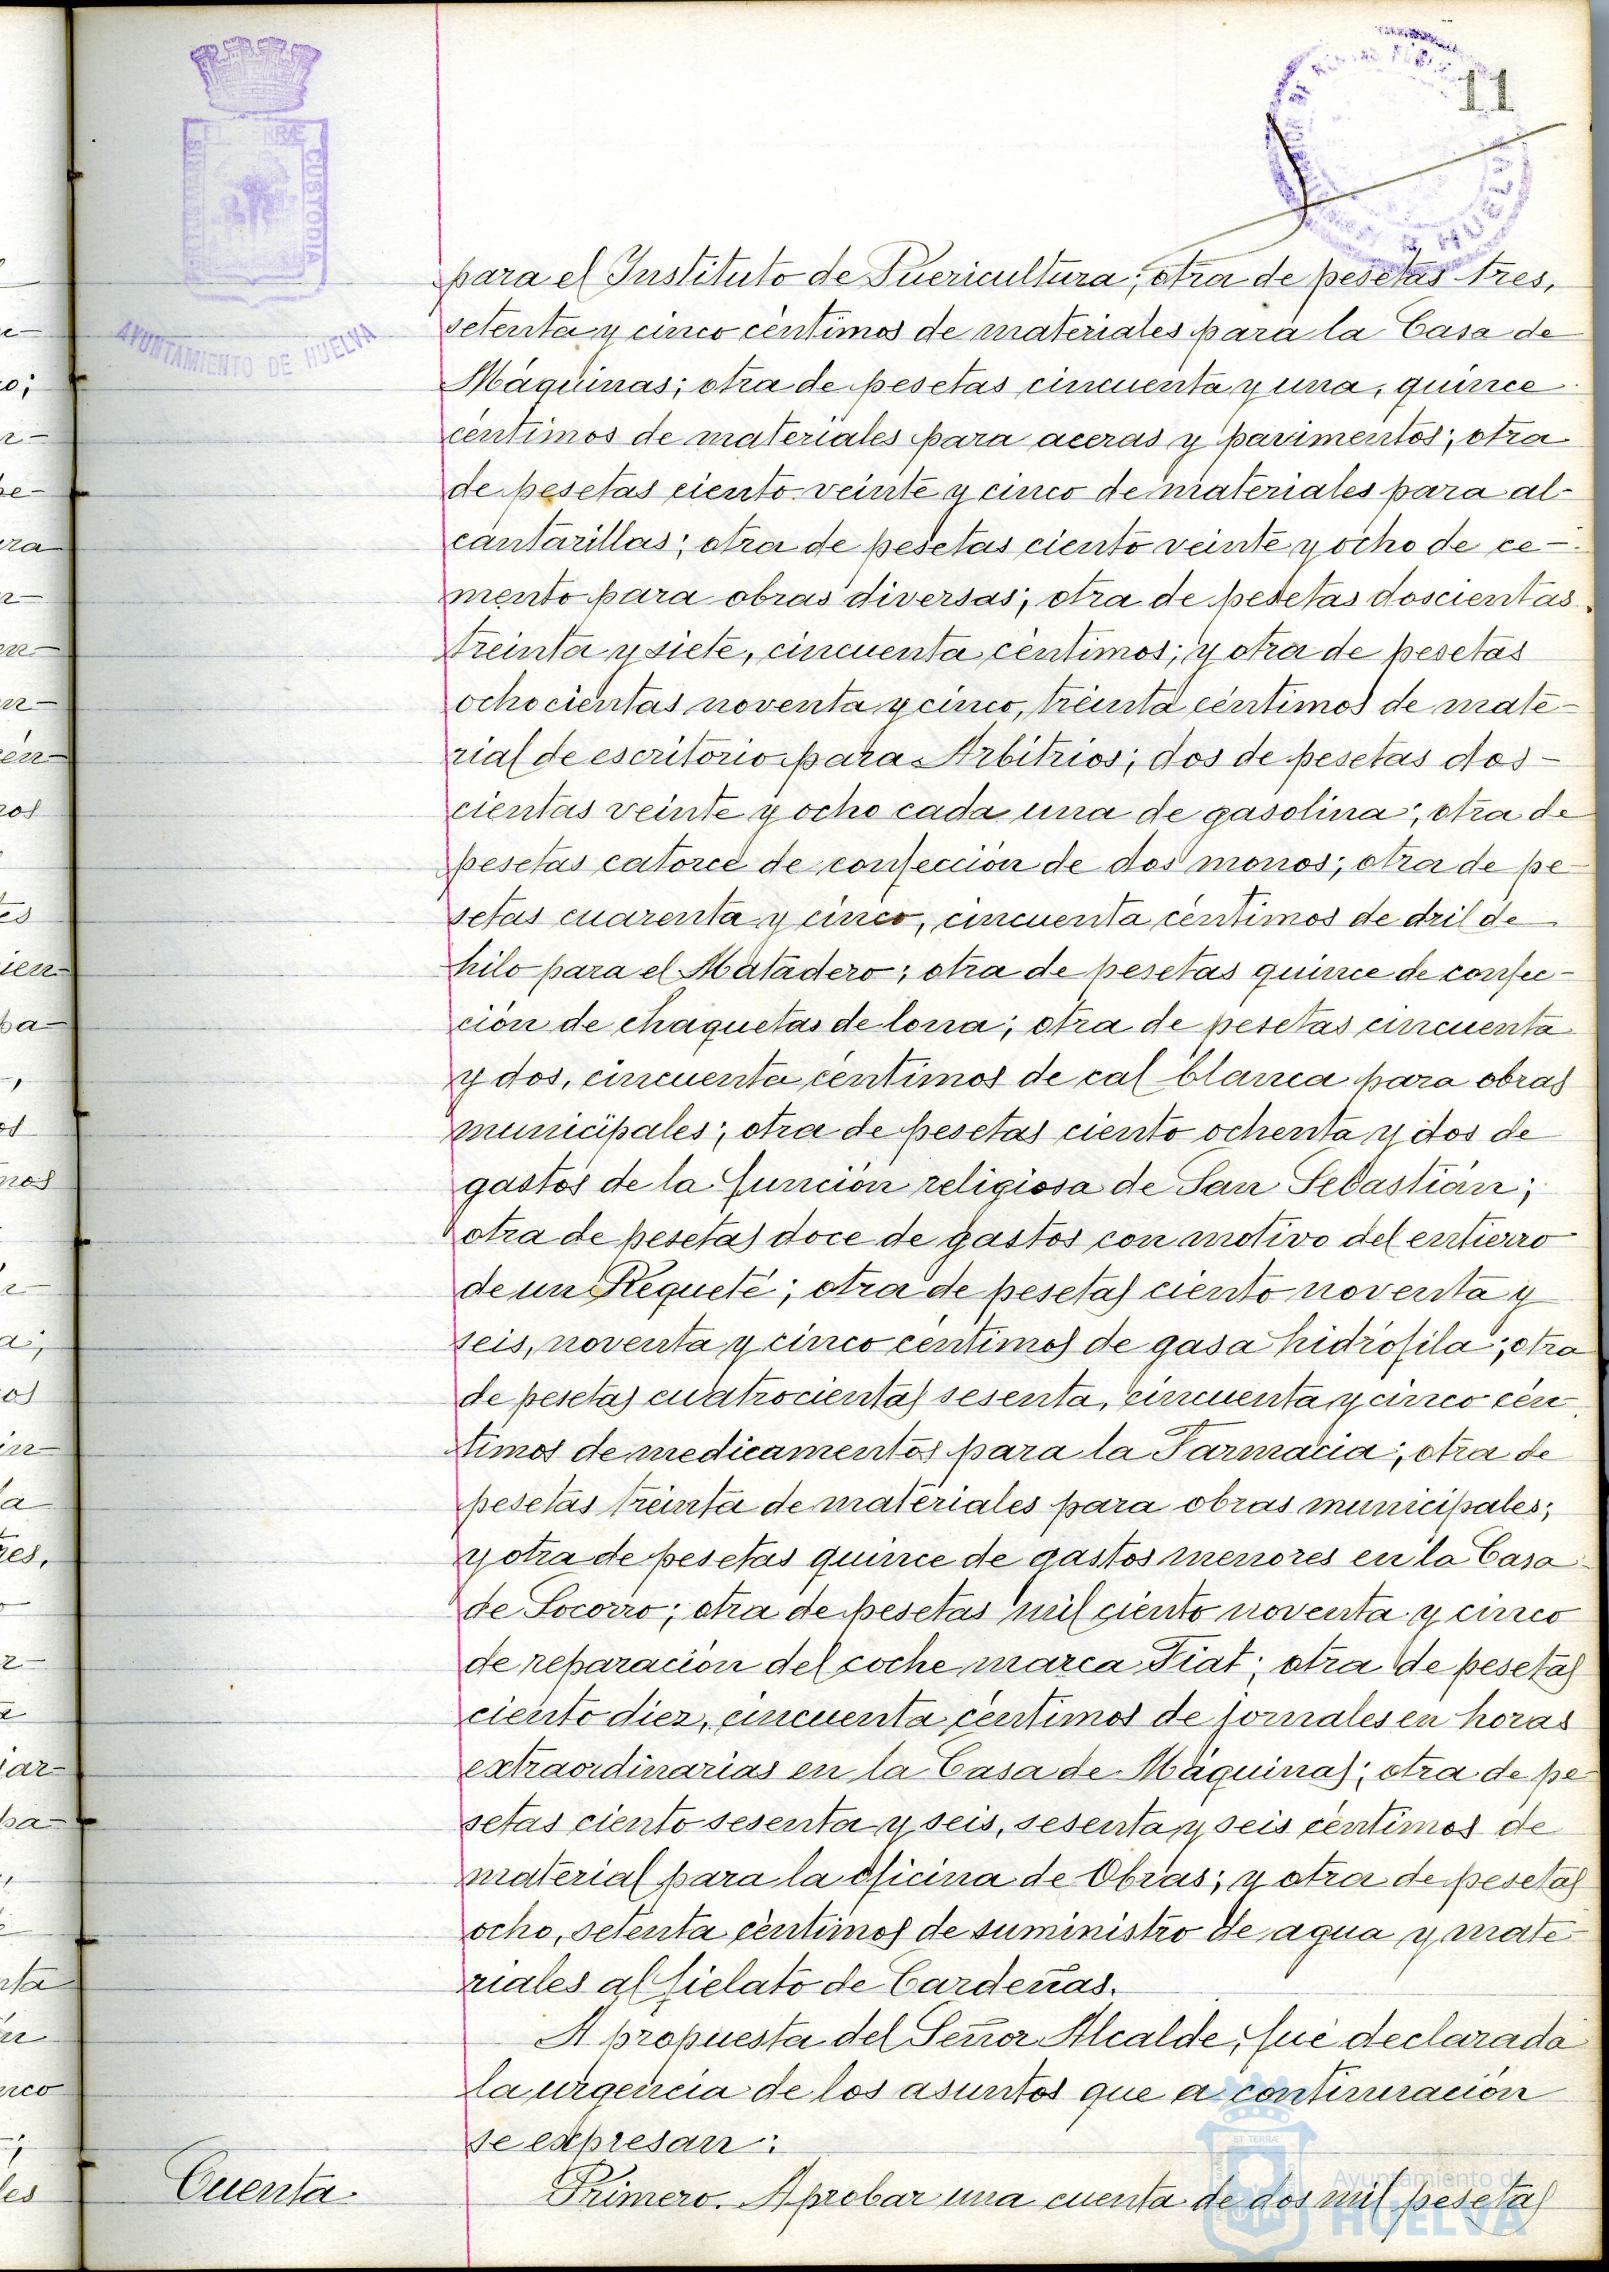 11
ET TERRÆ
CUSTODIA
AYUNTAMIENTO DE HUELVA
HUELVA
para el Instituto de Puericultura; otra de pesetas tres,
setenta y cinco céntimos de materiales para la Casa de
Máquinas; otra de pesetas cincuenta y una, quince
céntimos de materiales para aceras y pavimentos; otra
de pesetas ciento veinte y cinco de materiales para al-
cantarillas; otra de pesetas ciento veinte y ocho de ce-
mento para obras diversas; otra de pesetas doscientas
treinta y siete, cincuenta céntimos; y otra de pesetas
ochocientas noventa y cinco, treinta céntimos de mate-
rial de escritorio para Arbitrios; dos de pesetas dos-
cientas veinte y ocho cada una de gasolina; otra de
pesetas catorce de confección de dos monos; otra de pe-
setas cuarenta y cinco, cincuenta céntimos de dril de
hilo para el Matadero; otra de pesetas quince de confec-
ción de chaquetas de lona; otra de pesetas cincuenta
y dos, cincuenta céntimos de cal blanca para obras
municipales; otra de pesetas ciento ochenta y dos de
gastos de la función religiosa de San Sebastián;
otra de pesetas doce de gastos con motivo del entierro
de un Requeté; otra de pesetas ciento noventa y
seis, noventa y cinco centimos de gasa hidrófila; otra
de pesetas cuatrocientas sesenta, cincuenta y cinco cén-
timos de medicamentos para la Farmacia; otra de
pesetas treinta de materiales para obras municipales;
y otra de pesetas quince de gastos menores en la Casa
de Socorro; otra de pesetas mil ciento noventa y cinco
de reparación del coche marca Fiat; otra de pesetas
ciento diez, cincuenta céntimos de jornales en horas
extraordinarias en la Casa de Máquinas; otra de pe-
setas ciento sesenta y seis, sesenta y seis céntimos de
material para la oficina de Obras; y otra de pesetas
ocho, setenta céntimos de suministro de agua y mate-
riales al fielato de Cardeñas.
A propuesta del Señor Alcalde, fué declarada
la urgencia de los asuntos que a continuación
se expresan:
Cuenta. Primero. Aprobar una cuenta de dos mil pesetas
Ayuntamiento de
HUELVA